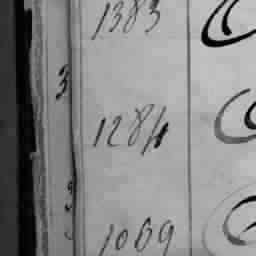 1383
3
1284
3
1069